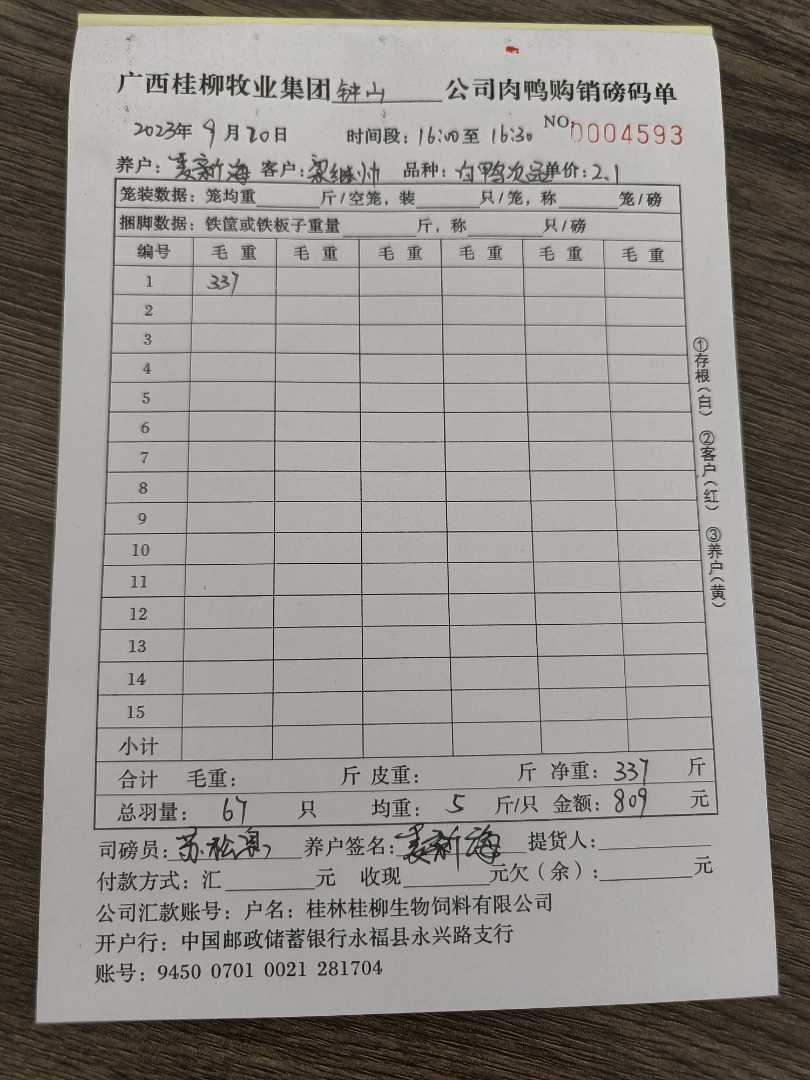 广西桂柳牧业集团钟山公司肉鸭购销磅码单
2023年9月20日 时间段:16:00至16:30 NO:0004593
养户:麦新海 客户:梁继帅 品种:白鸭次品 单价:2.1
笼装数据:笼均重______斤/空笼,装______只/笼,称______笼/磅
捆脚数据:铁筐或铁板子重量______斤,称______只/磅
编号 毛重 毛重 毛重 毛重 毛重 毛重
1 337
2
3
4
5
6
7
8
9
10
11
12
13
14
15
小计
合计 毛重: 斤 皮重: 斤 净重:337 斤
总羽量:67 只 均重:5 斤/只 金额:809 元
司磅员:苏松 养户签名:麦新海 提货人:______
付款方式:汇______元 收现______元欠(余):______元
公司汇款账号:户名:桂林桂柳生物饲料有限公司
开户行:中国邮政储蓄银行永福县永兴路支行
账号:9450 0701 0021 281704
①存根(白) ②客户(红) ③养户(黄)